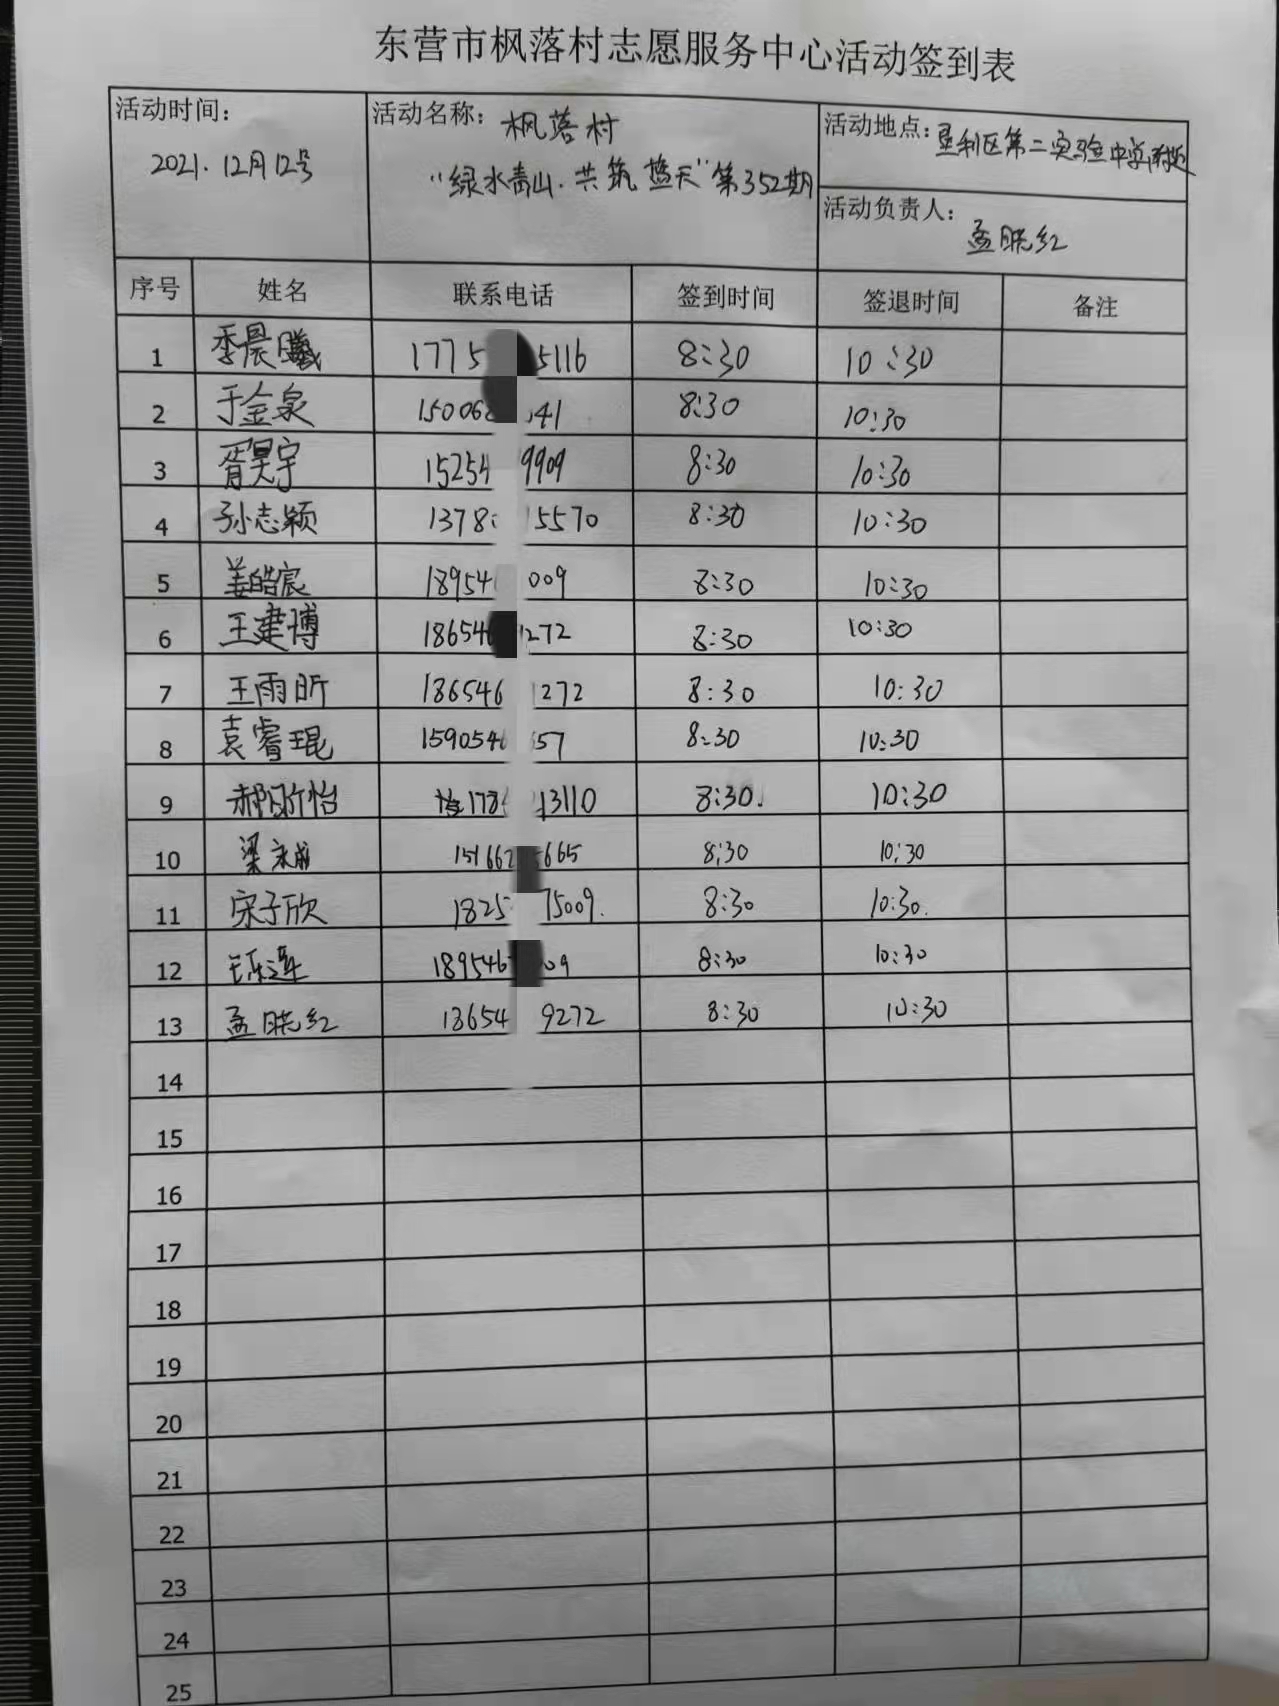 东营市枫落村志愿服务中心活动签到表
活动时间： 2021.12月12号
活动名称： 枫落村
“绿水青山.共筑蓝天”第352期
活动地点： 垦利区第二实验中学
活动负责人： 孟晓红
序号 姓名 联系电话 签到时间 签退时间 备注
1 李晨曦 1775 5116 8:30 10:30
2 于金泉 15006 41 8:30 10:30
3 胥昊宇 15254 9909 8:30 10:30
4 孙志颖 1378 5570 8:30 10:30
5 姜皓宸 18954 009 8:30 10:30
6 王建博 18654 272 8:30 10:30
7 王雨昕 186546 1272 8:30 10:30
8 袁睿琨 159054 57 8:30 10:30
9 178 13110 8:30. 10:30
10 梁 15166 665 8:30 10:30
11 宋子欣 1825 75009. 8:30 10:30.
12 189546 09 8:30 10:30
13 孟晓红 18654 9272 8:30 10:30
14
15
16
17
18
19
20
21
22
23
24
25